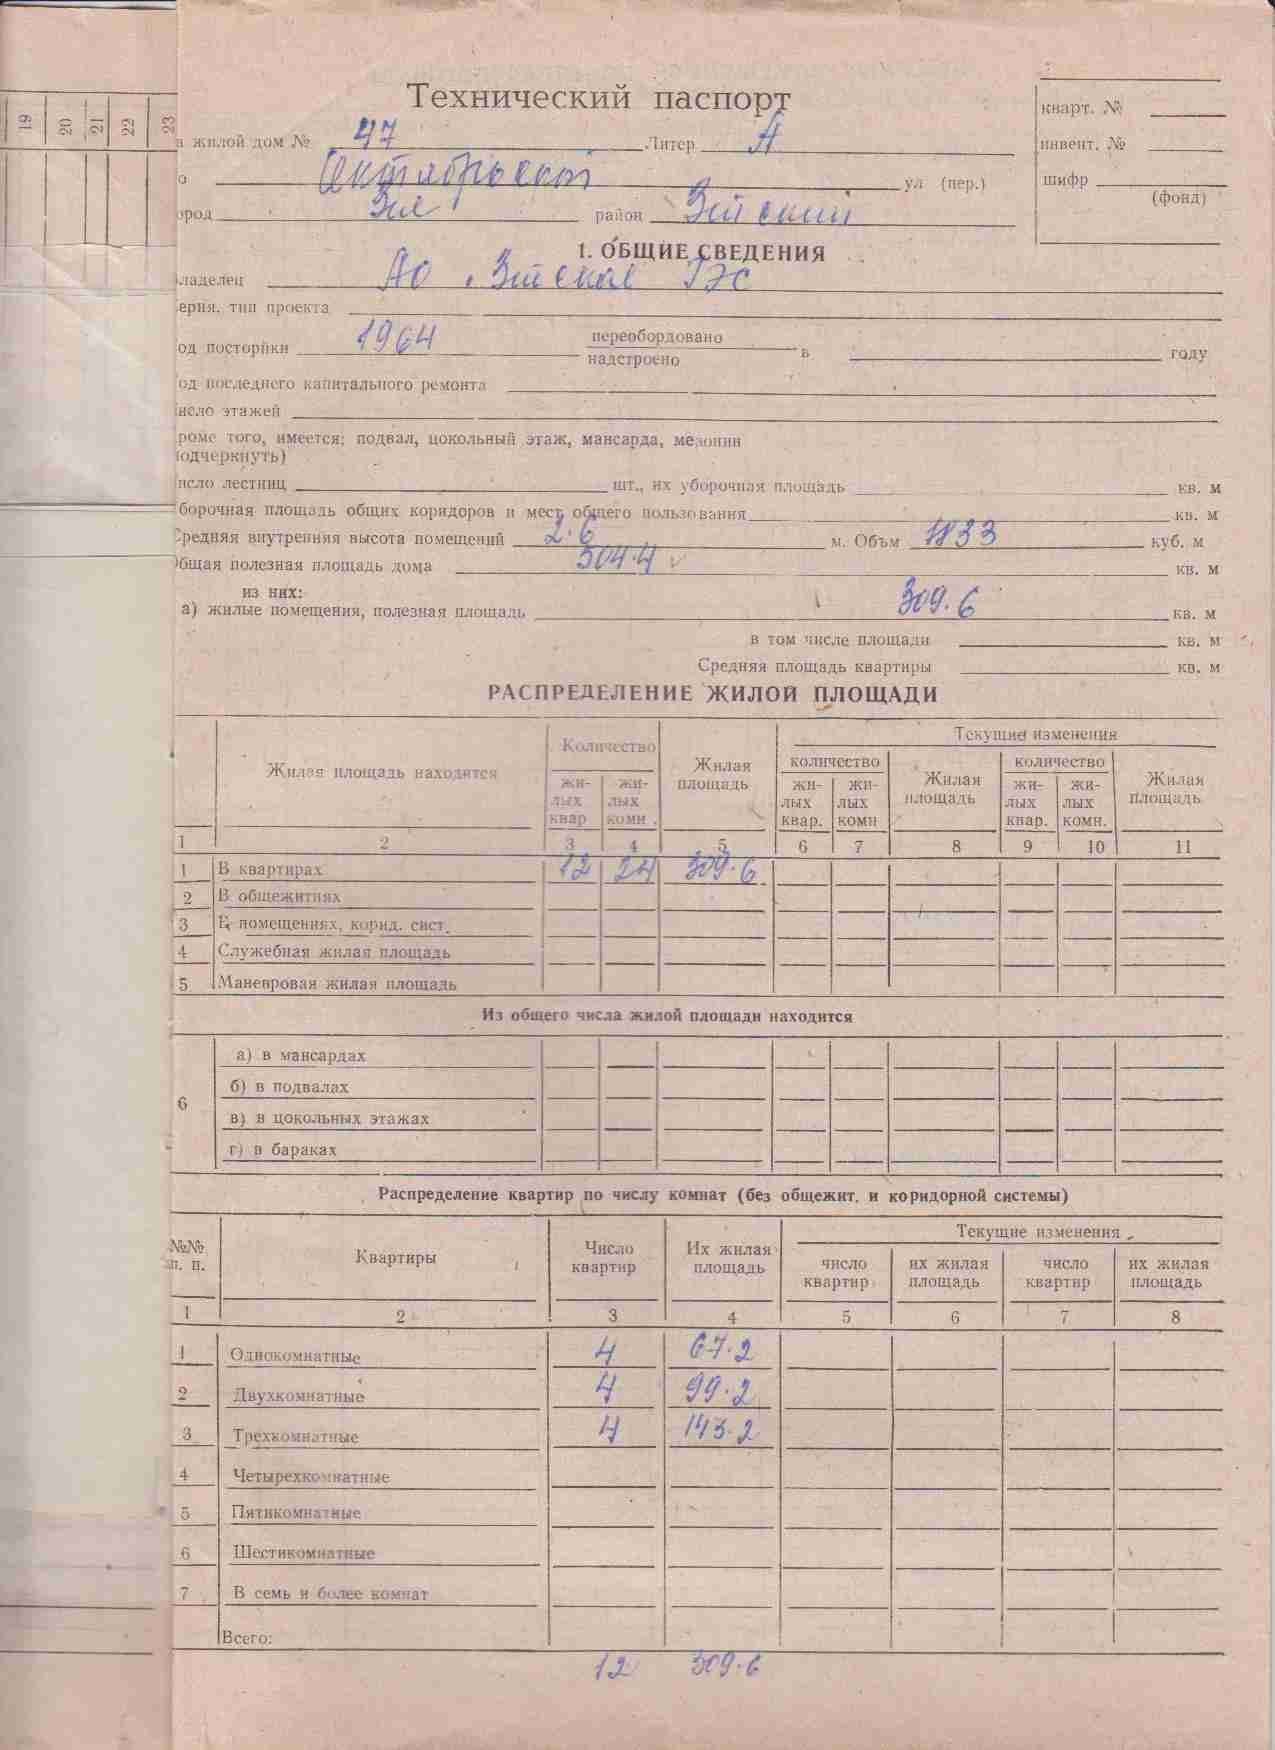 19 20 21 22 23
Технический паспорт
кварт. №
а жилой дом № 47 Литер А
инвент. №
о Октябрьской ул (пер.)
шифр
(фонд)
ород Зея район Зейский
1. ОБЩИЕ СВЕДЕНИЯ
ладелец АО Зейская ГЭС
ерия, тип проекта
од посторйки 1964 переобордовано
надстроено в году
од последнего капитального ремонта
исло этажей
роме того, имеется: подвал, цокольный этаж, мансарда, мезонин
одчеркнуть)
исло лестниц шт., их уборочная площадь кв. м
борочная площадь общих коридоров и мест общего пользования кв. м
Средняя внутренняя высота помещений 2.6 м. Объм 1833 куб. м
бщая полезная площадь дома 504.4 кв. м
из них:
а) жилые помещения, полезная площадь 309.6 кв. м
в том числе площади кв. м
Средняя площадь квартиры кв. м
РАСПРЕДЕЛЕНИЕ ЖИЛОЙ ПЛОЩАДИ
Жилая площадь находится Количество Жилая площадь Текущие изменения
количество Жилая площадь количество Жилая площадь
жи-лых квар жи-лых комн. жи-лых квар. жи-лых комн жи-лых квар. жи-лых комн.
1 2 3 4 5 6 7 8 9 10 11
1 В квартирах 12 24 309.6
2 В общежитиях
3 В помещениях, корид. сист.
4 Служебная жилая площадь
5 Маневровая жилая площадь
Из общего числа жилой площади находится
6 а) в мансардах
б) в подвалах
в) в цокольных этажах
г) в бараках
Распределение квартир по числу комнат (без общежит. и коридорной системы)
№№ п. п. Квартиры Число квартир Их жилая площадь Текущие изменения
число квартир их жилая площадь число квартир их жилая площадь
1 2 3 4 5 6 7 8
1 Однокомнатные 4 67.2
2 Двухкомнатные 4 99.2
3 Трехкомнатные 4 143.2
4 Четырехкомнатные
5 Пятикомнатные
6 Шестикомнатные
7 В семь и более комнат
Всего:
12 309.6